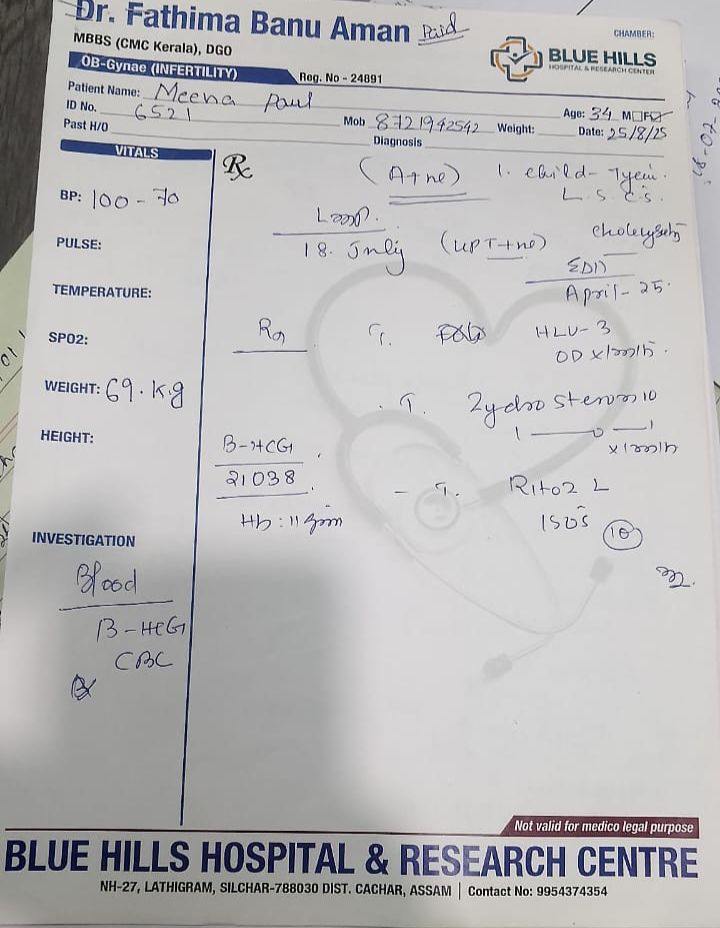 Dr. Fathima Banu Aman Paid
MBBS (CMC Kerala), DGO
OB-Gynae (INFERTILITY)
Reg. No - 24891
CHAMBER:
BLUE HILLS
HOSPITAL & RESEARCH CENTER
Patient Name: Meena Paul
Age: 34 M F
ID No. 6521
Mob 8721942542 Weight:
Date: 25/8/25
Past H/O
Diagnosis
VITALS
BP: 100-70
PULSE:
TEMPERATURE:
SPO2:
WEIGHT: 69.kg
HEIGHT:
INVESTIGATION
Blood
B-HCG
CBC
Rx
(A+ve) 1. child-
L.S.C.S.
18. July (UPT+ve)
EDD
April-25.
T. HLV-3
OD x
T.
10
1 — 0 — 1
B-HCG
21038
Hb: 11 gm
- T.
10
Not valid for medico legal purpose
BLUE HILLS HOSPITAL & RESEARCH CENTRE
NH-27, LATHIGRAM, SILCHAR-788030 DIST. CACHAR, ASSAM | Contact No: 9954374354